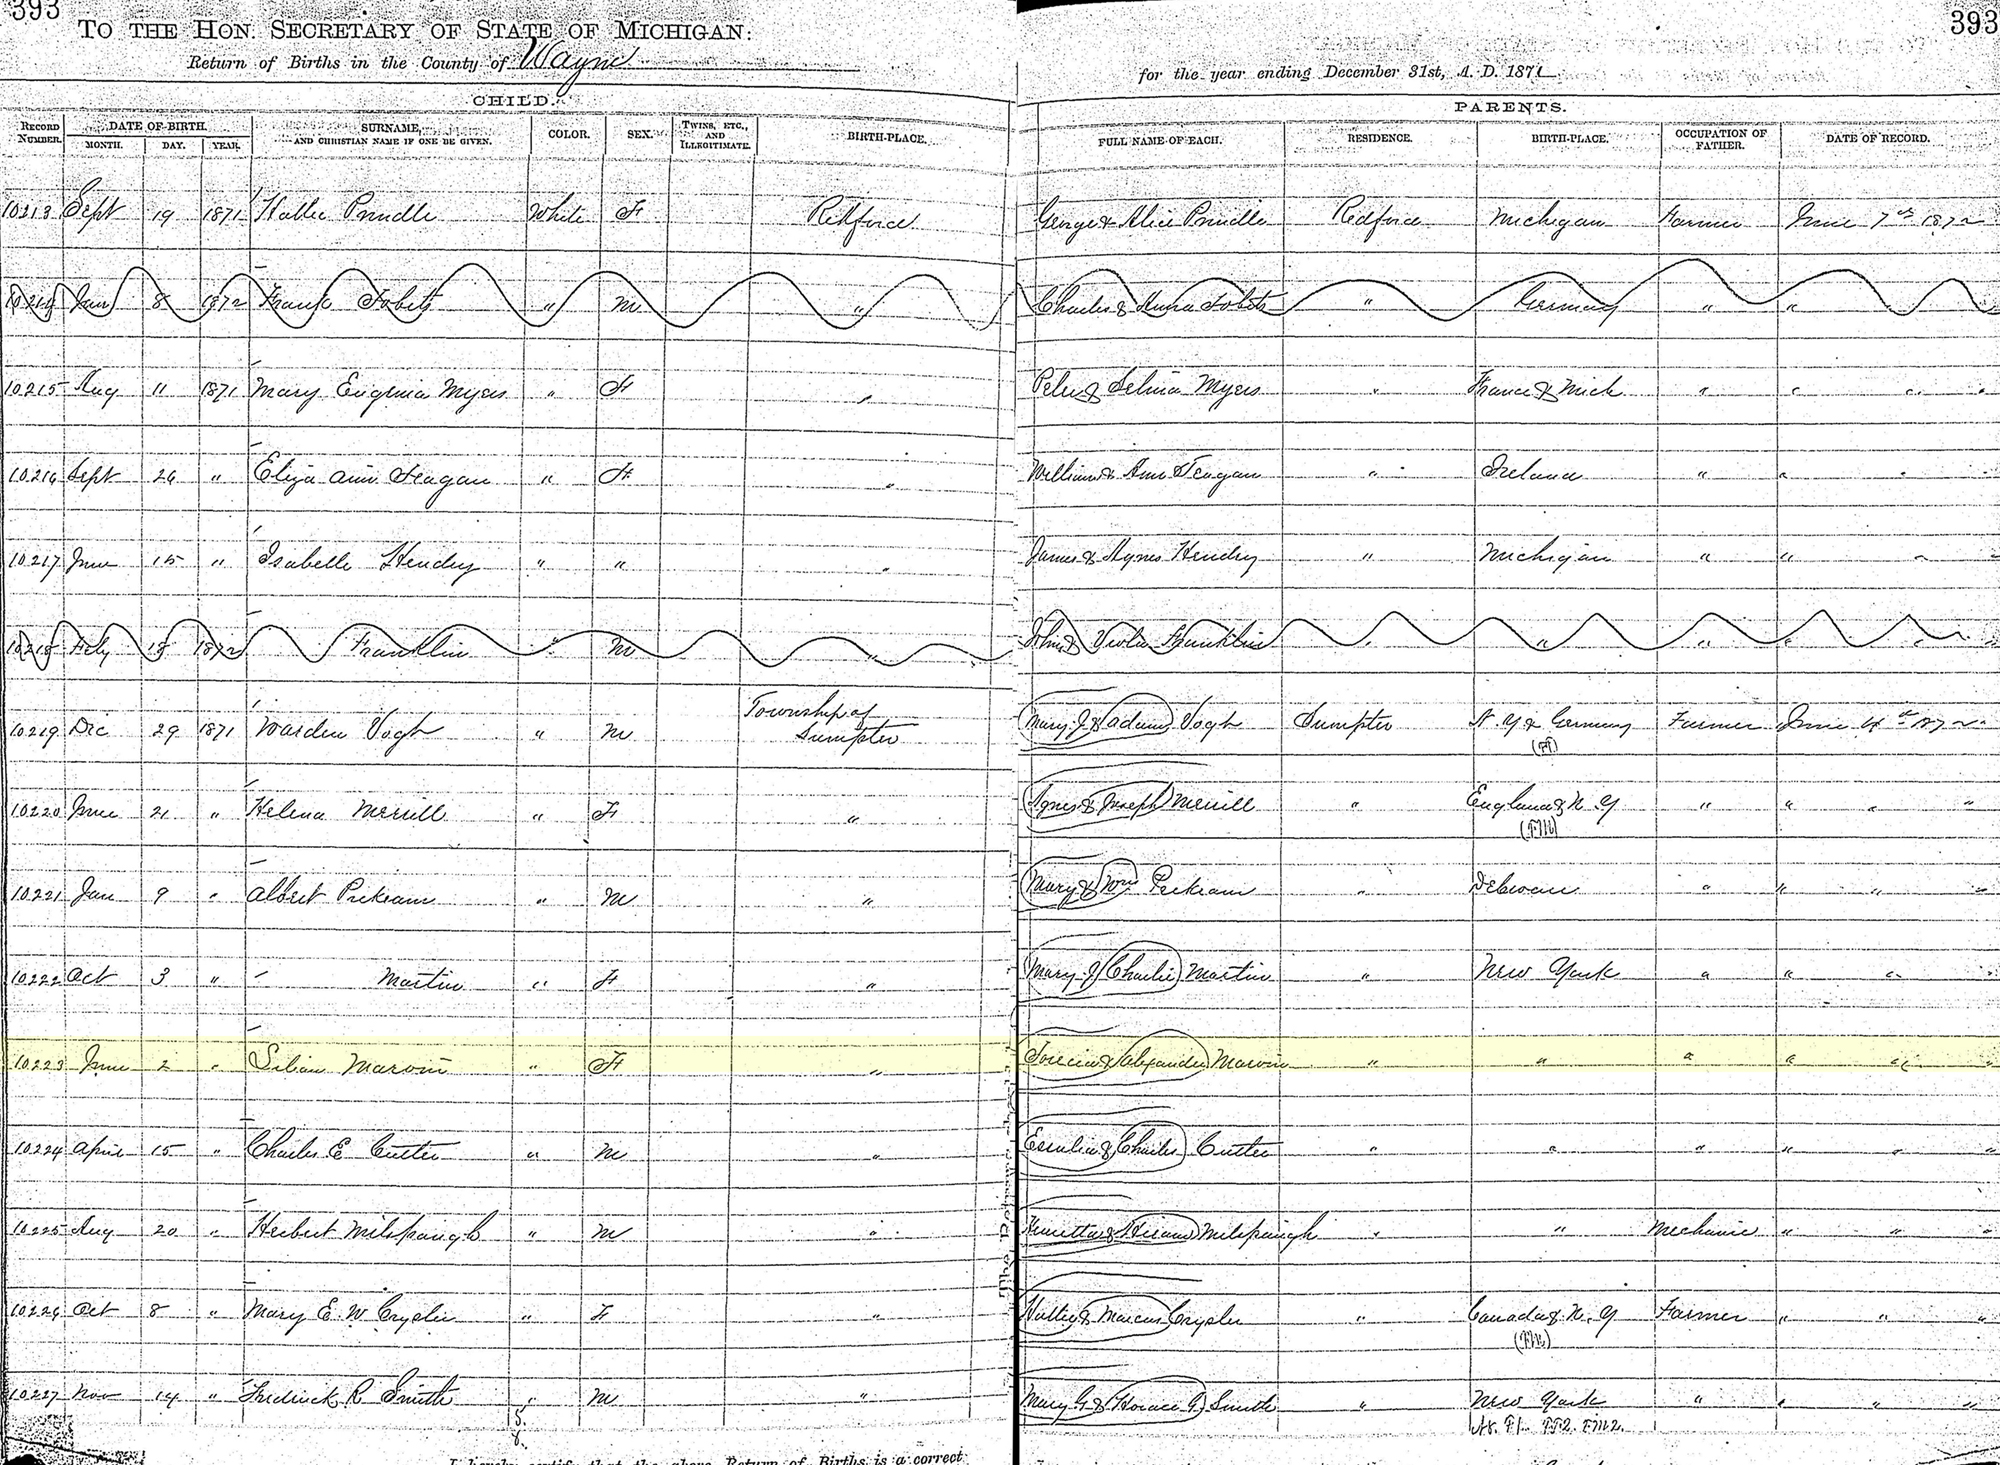 393
393
TO THE HON. SECRETARY OF STATE OF MICHIGAN:
Return of Births in the County of Wayne
for the year ending December 31st, A. D. 1871
CHILD.
PARENTS.
RECORD NUMBER. DATE OF BIRTH. MONTH. DAY. YEAR. SURNAME, AND CHRISTIAN NAME IF ONE BE GIVEN. COLOR. SEX. TWINS, ETC., AND ILLEGITIMATE. BIRTH-PLACE. FULL NAME OF EACH. RESIDENCE. BIRTH-PLACE. OCCUPATION OF FATHER. DATE OF RECORD.
10213 Sept 19 1871 Hattie Prindle White F Redford George & Alice Prindle Redford Michigan Farmer June 7th 1872
10214 Jan 8 1872 Frank " M " Charles & Anna " Germany " " " "
10215 Aug 11 1871 Mary Eugenia Myers " F " Peter & Selina Myers " France & Mich " " " "
10216 Sept 26 " Eliza Ann Feagan " F " William & Ann Feagan " Ireland " " "
10217 June 15 " Isabelle Hendry " " " James & Agnes Hendry " Michigan " " " "
10218 Feby 18 1872 Franklin " M " John & Viola Franklin " " " " " "
10219 Dec 29 1871 Warden Vogh " M Township of Sumpter Mary J & Vogh Sumpter N. Y & Germany Farmer June 4th 1872
10220 June 21 " Helena Merrill " F " Agnes & Joseph Merrill " England & N. Y " " " "
(FM)
10221 Jan 9 " Albert " M " Mary & Wm " " " " "
10222 Oct 3 " Martin " F " Mary J Charlie Martin " New York " " " "
10223 June 2 " Lilian Marvin " F " & Alexander Marvin " " " " " "
10224 April 15 " Charles E Cutter " M " & Charles Cutter " " " " " "
10225 Aug 20 " Herbert Milspaugh " M " & Hiram Milspaugh " " Mechanic " " "
10226 Oct 8 " Mary E. W Crysler " F " Hattie & Marcus Crysler " Canada & N. Y Farmer " " "
(FM)
10227 Nov 14 " Fredrick R Smith " M " Mary G & Horace G. Smith " New York " " " "
I hereby certify that the above Return of Births is a correct